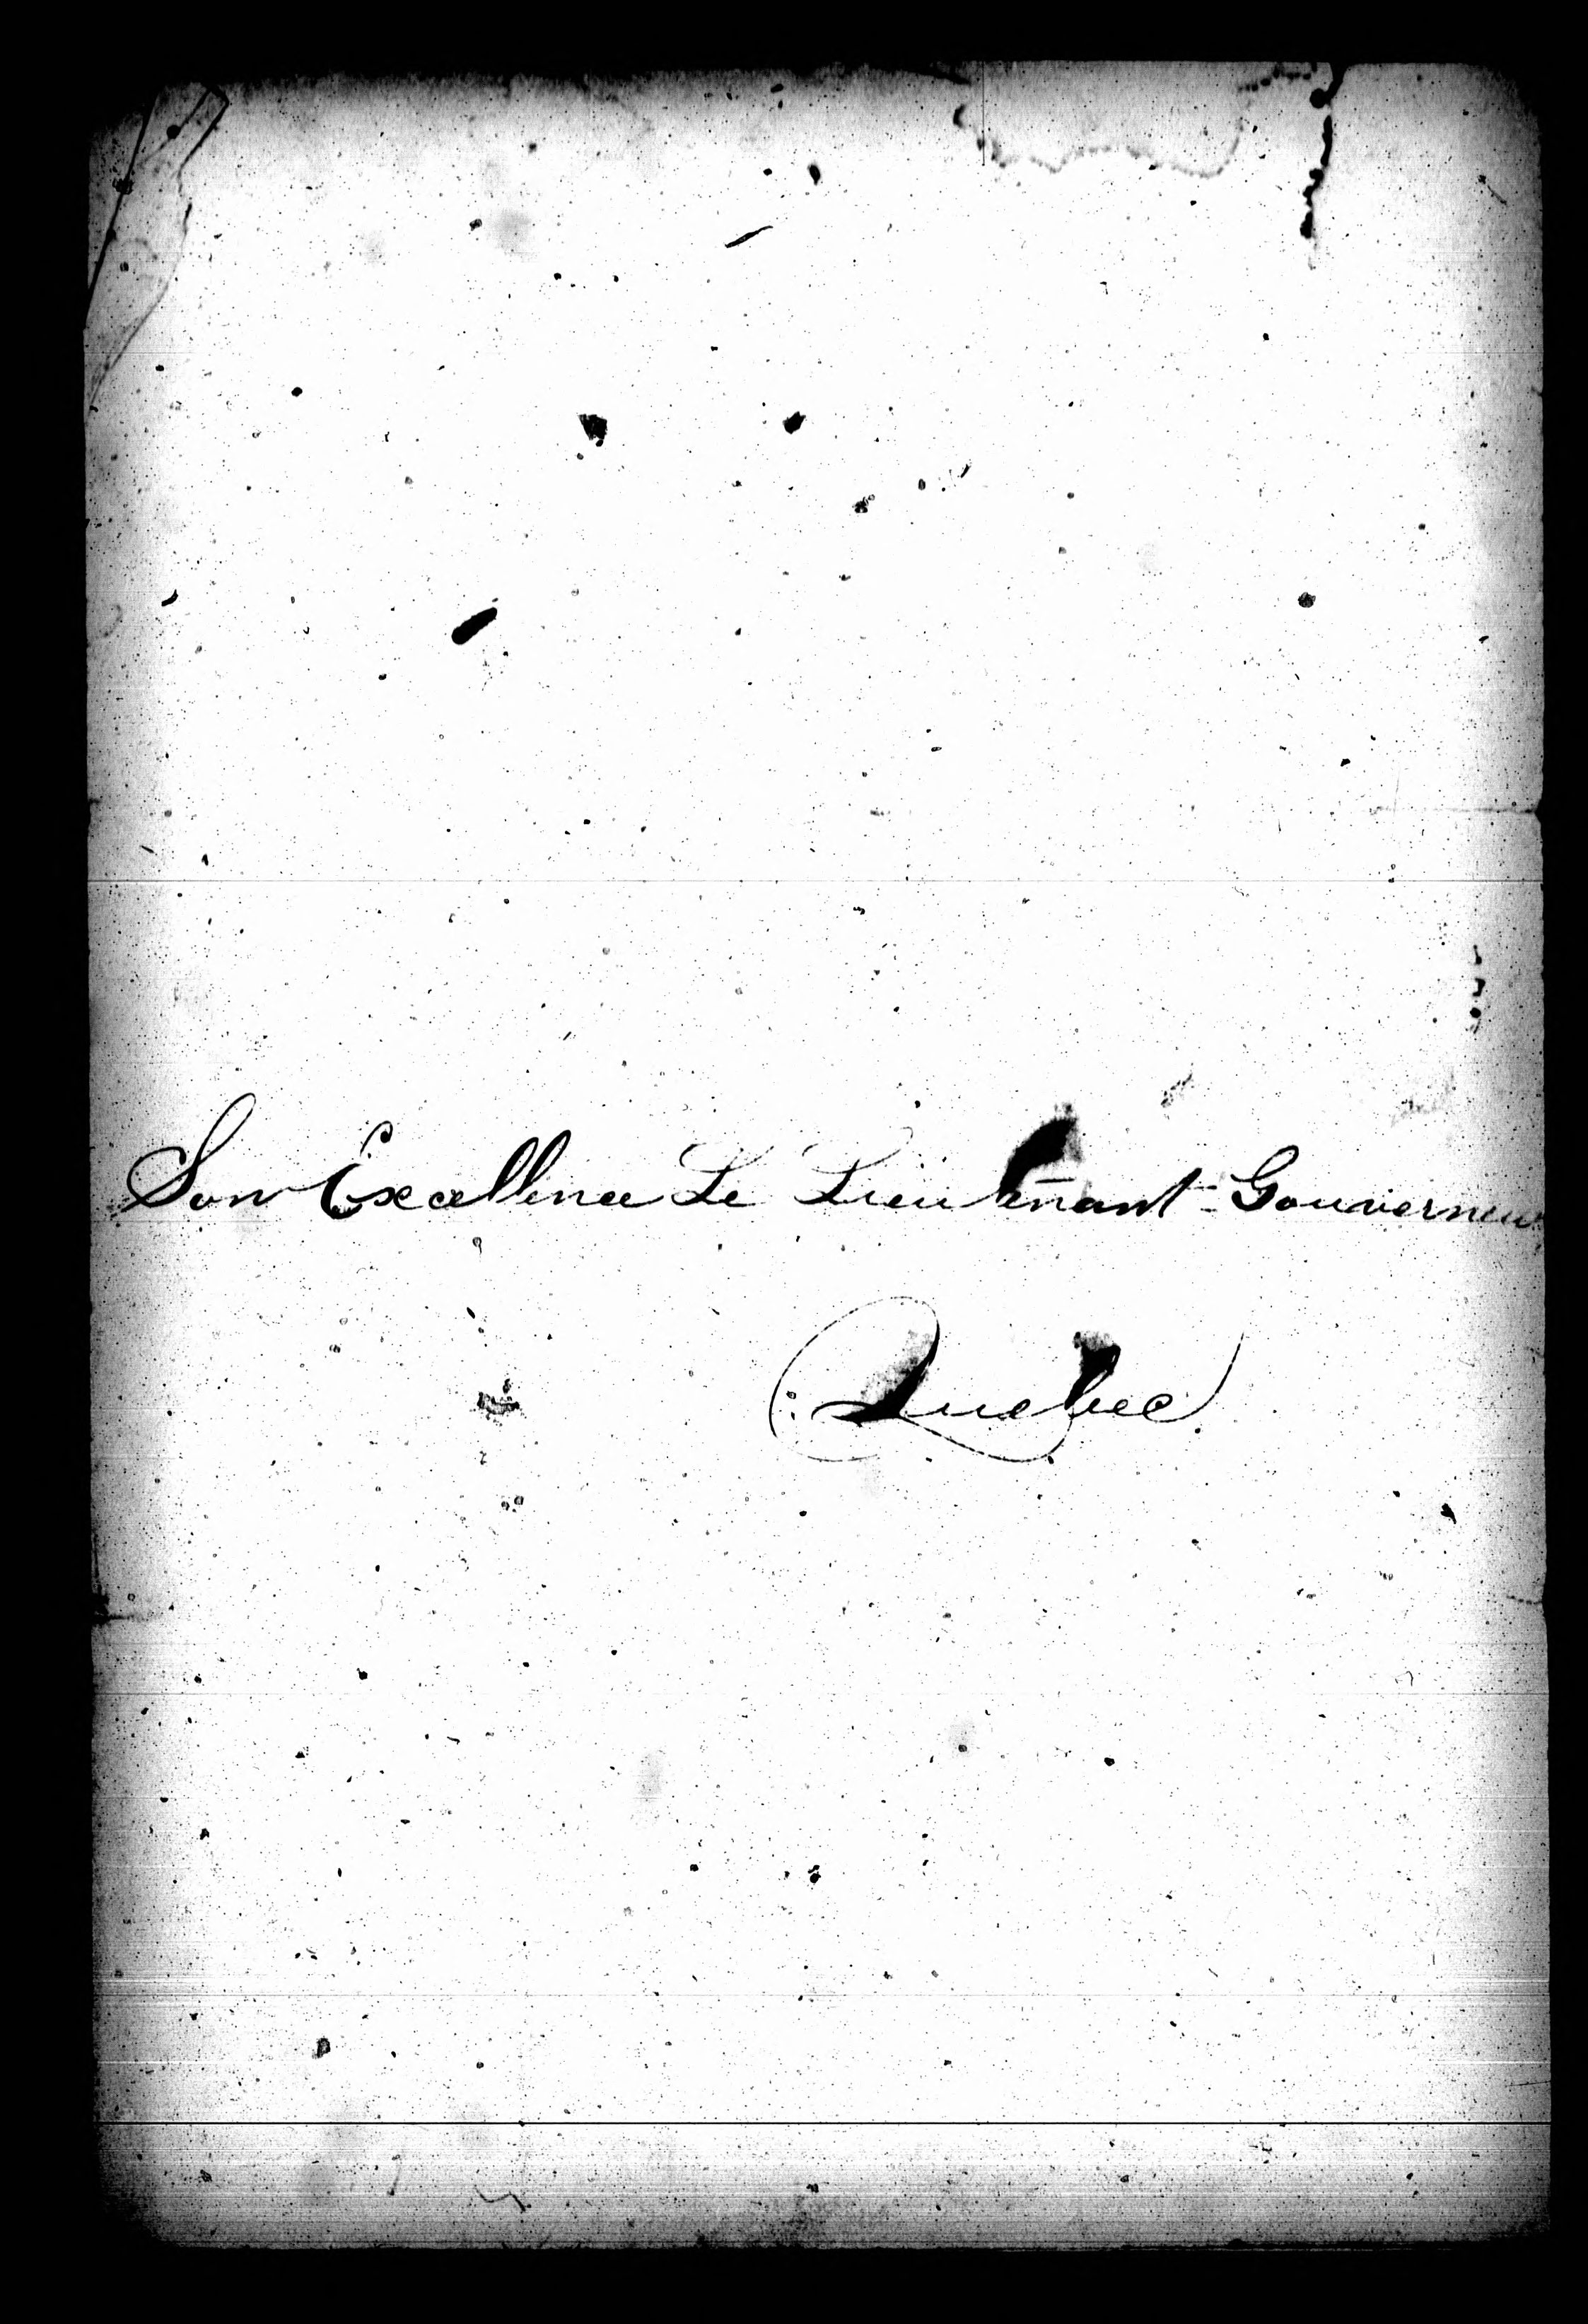 Son Excellence Le Lieutenant-Gouverneur
Quebec